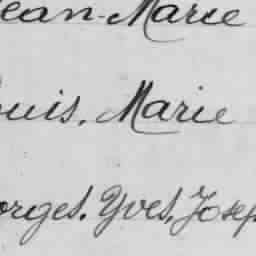 ean-Marie
ouis, Marie
orges, Yves, Josep